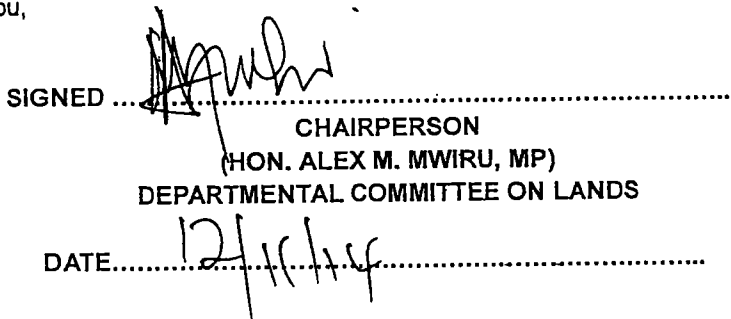 ou,
SIGNED ..........................................................
CHAIRPERSON
(HON. ALEX M. MWIRU, MP)
DEPARTMENTAL COMMITTEE ON LANDS
DATE..... 12/11/14 ..........................................